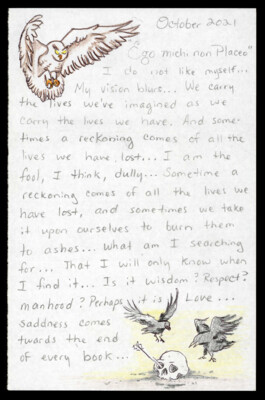 October 2021
"Ego michi non Placeo"
I do not like myself...
My vision blurs... We carry
the lives we've imagined as we
carry the lives we have. And some-
times a reckoning comes of all the
lives we have lost... I am the
fool, I think, dully... Sometime a
reckoning comes of all the lives we
have lost, and sometimes we take
it upon ourselves to burn them
to ashes... What am I searching
for... That I will only know when
I find it... Is it wisdom? Respect?
manhood? Perhaps it is Love...
saddness comes
twards the end
of every book...